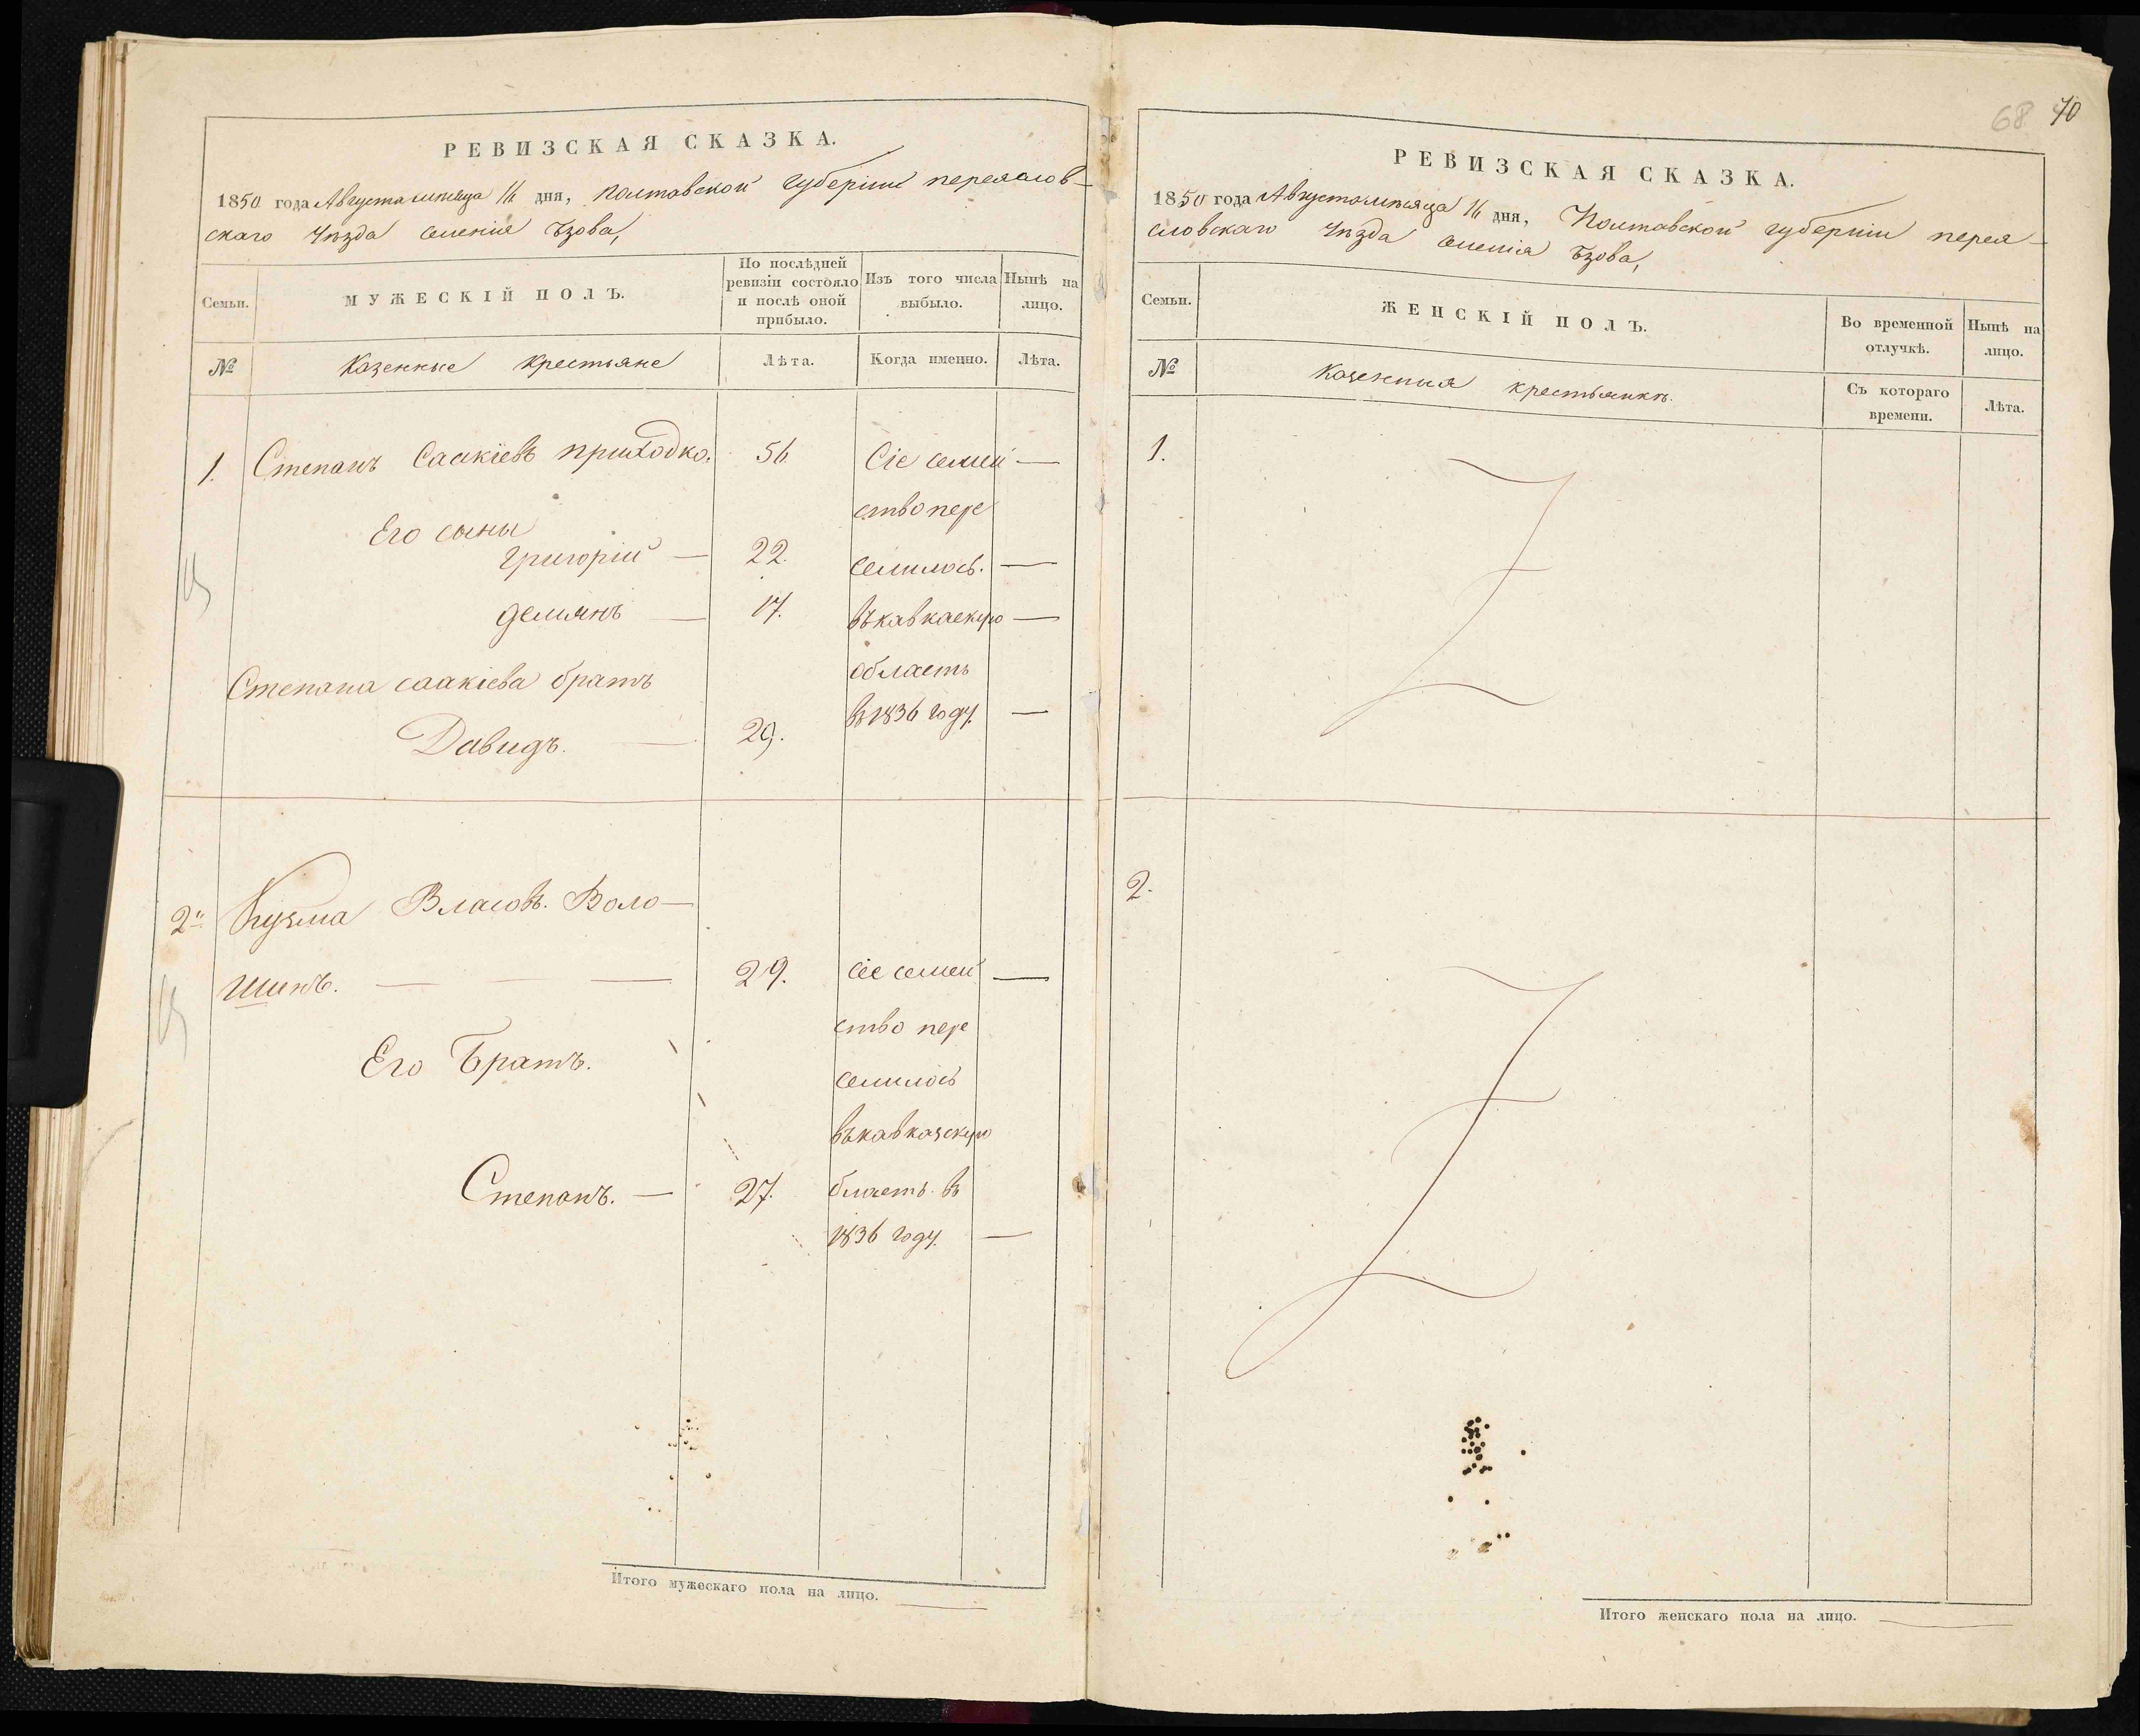 РЕВИЗСКАЯ СКАЗКА.
1850 года Августа мѣсяца 16 дня, Полтавской губерніи переяслов-
скаго уѣзда селенія Ѣзова,
Семьи.
МУЖЕСКІЙ ПОЛЪ.
По послѣдней
ревизіи состояло
и послѣ оной
прибыло.
Изъ того числа
выбыло.
Нынѣ на
лицо.
№
Казенные крестьяне
Лѣта.
Когда именно.
Лѣта.
1. Степанъ Саакіевъ приходко. 56. Сіе семей —
ство пере
Его сыны
григорій — 22. селилось. —
демянъ — 17. въ кавкаскую —
область
Степана саакіева братъ
в 1836 году. —
Давидъ. — 29.
2. Кузма Власовъ. Воло—
шинъ. — — — 29. сіе семей —
ство пере
Его Братъ.
селилось
въ кавказскую
Степанъ. — 27. бласть в
1836 году. —
Итого мужескаго пола на лицо.
68 70
РЕВИЗСКАЯ СКАЗКА.
1850 года Августа мѣсяца 16 дня, Полтавской губерніи перея-
словскаго уѣзда селенія Ѣзова,
Семьи.
ЖЕНСКІЙ ПОЛЪ.
Во временной
отлучкѣ.
Нынѣ на
лицо.
№
Казенныя крестьянки.
Съ котораго
времени.
Лѣта.
1.
2.
Итого женскаго пола на лицо.